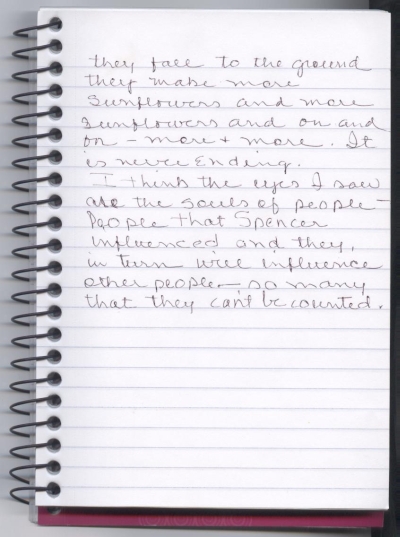 they fall to the ground
they make more
sunflowers and more
sunflowers and on and
on - more + more. It
is never Ending.
I think the eyes I saw
are the souls of people -
People that Spencer
influenced and they,
in turn will influence
other people - so many
that they can't be counted.